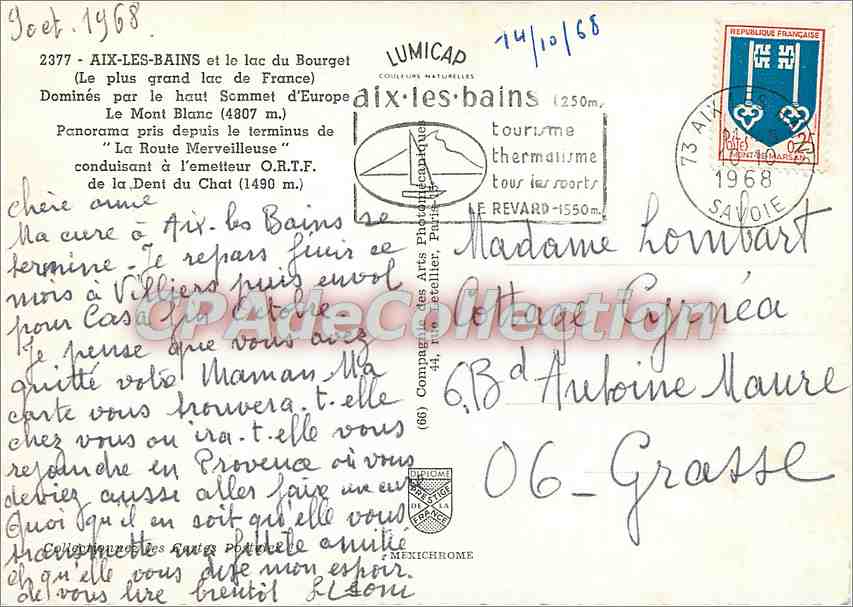 9 oct. 1968
14/10/68
2377 - AIX-LES-BAINS et le lac du Bourget
(Le plus grand lac de France)
Dominés par le haut Sommet d'Europe
Le Mont Blanc (4807 m.)
Panorama pris depuis le terminus de
" La Route Merveilleuse "
conduisant à l'emetteur O.R.T.F.
de la Dent du Chat (1490 m.)
LUMICAP
COULEURS NATURELLES
aix·les·bains (250m)
tourisme
thermalisme
tous les sports
LE REVARD-1550m.
REPUBLIQUE FRANÇAISE
Postes 0,25
MONT-DE-MARSAN
73 AIX LES BAINS
1968
SAVOIE
chère amie
Ma cure à Aix-les Bains se
termine. Je repars finir ce
mois à Villiers puis envol
pour Casa fin Octobre
Je pense que vous avez
quitté votre Maman. Ma
carte vous trouvera-t-elle
chez vous ou ira-t-elle vous
rejoindre en Provence où vous
deviez aussi aller faire une cure
Quoi qu'il en soit qu'elle vous
transmette ma fidèle amitié
et qu'elle vous dise mon espoir
de vous lire bientôt
Madame Lombart
Cottage Cyrnéa
6, Bd Antoine Maure
06 - Grasse
(66) Compagnie des Arts Photomécaniques
44, rue Letellier, Paris-15
DIPLOME
PRESTIGE
DE LA
FRANCE
Collectionnez les Cartes Postales !
MEXICHROME
CPAdeCollection